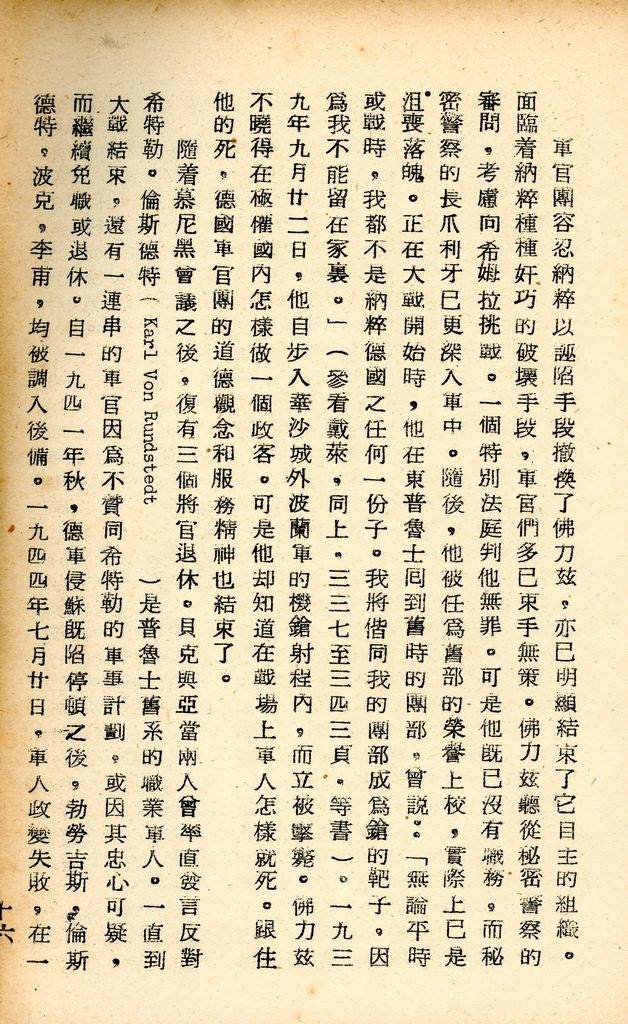 軍官團容忍納粹以誣陷手段撤換了佛力玆，亦已明顯結束了它自主的組織。
面臨着納粹種種奸巧的破壞手段，軍官們多已束手無策。佛力玆聽從秘密警察的
審問，考慮向希姆拉挑戰。一個特別法庭判他無罪。可是他既已沒有職務，而秘
密警察的長爪利牙已更深入軍中。隨後，他被任爲舊部的榮譽上校，實際上已是
沮喪落魄。正在大戰開始時，他在東普魯士囘到舊時的團部，曾説：「無論平時
或戰時，我都不是納粹德國之任何一份子。我將偕同我的團部成爲鎗的靶子，因
爲我不能留在家裏。」（參看戴萊，同上，三三七至三四三頁，等書）。一九三
九年九月廿二日，他自步入華沙城外波蘭軍的機鎗射程內，而立被擊斃。佛力玆
不曉得在極權國內怎樣做一個政客。可是他却知道在戰場上軍人怎樣就死。跟住
他的死，德國軍官團的道德觀念和服務精神也結束了。
隨着慕尼黑會議之後，復有三個將官退休。貝克與亞當兩人曾率直發言反對
希特勒。倫斯德特（Karl Von Rundstedt）是普魯士舊系的職業軍人。一直到
大戰結束，還有一連串的軍官因爲不贊同希特勒的軍事計劃，或因其忠心可疑，
而繼續免職或退休。自一九四一年秋，德軍侵蘇既陷停頓之後，勃勞吉斯，倫斯
德特，波克，李甫，均被調入後備。一九四四年七月廿日，軍人政變失敗，在一
十六